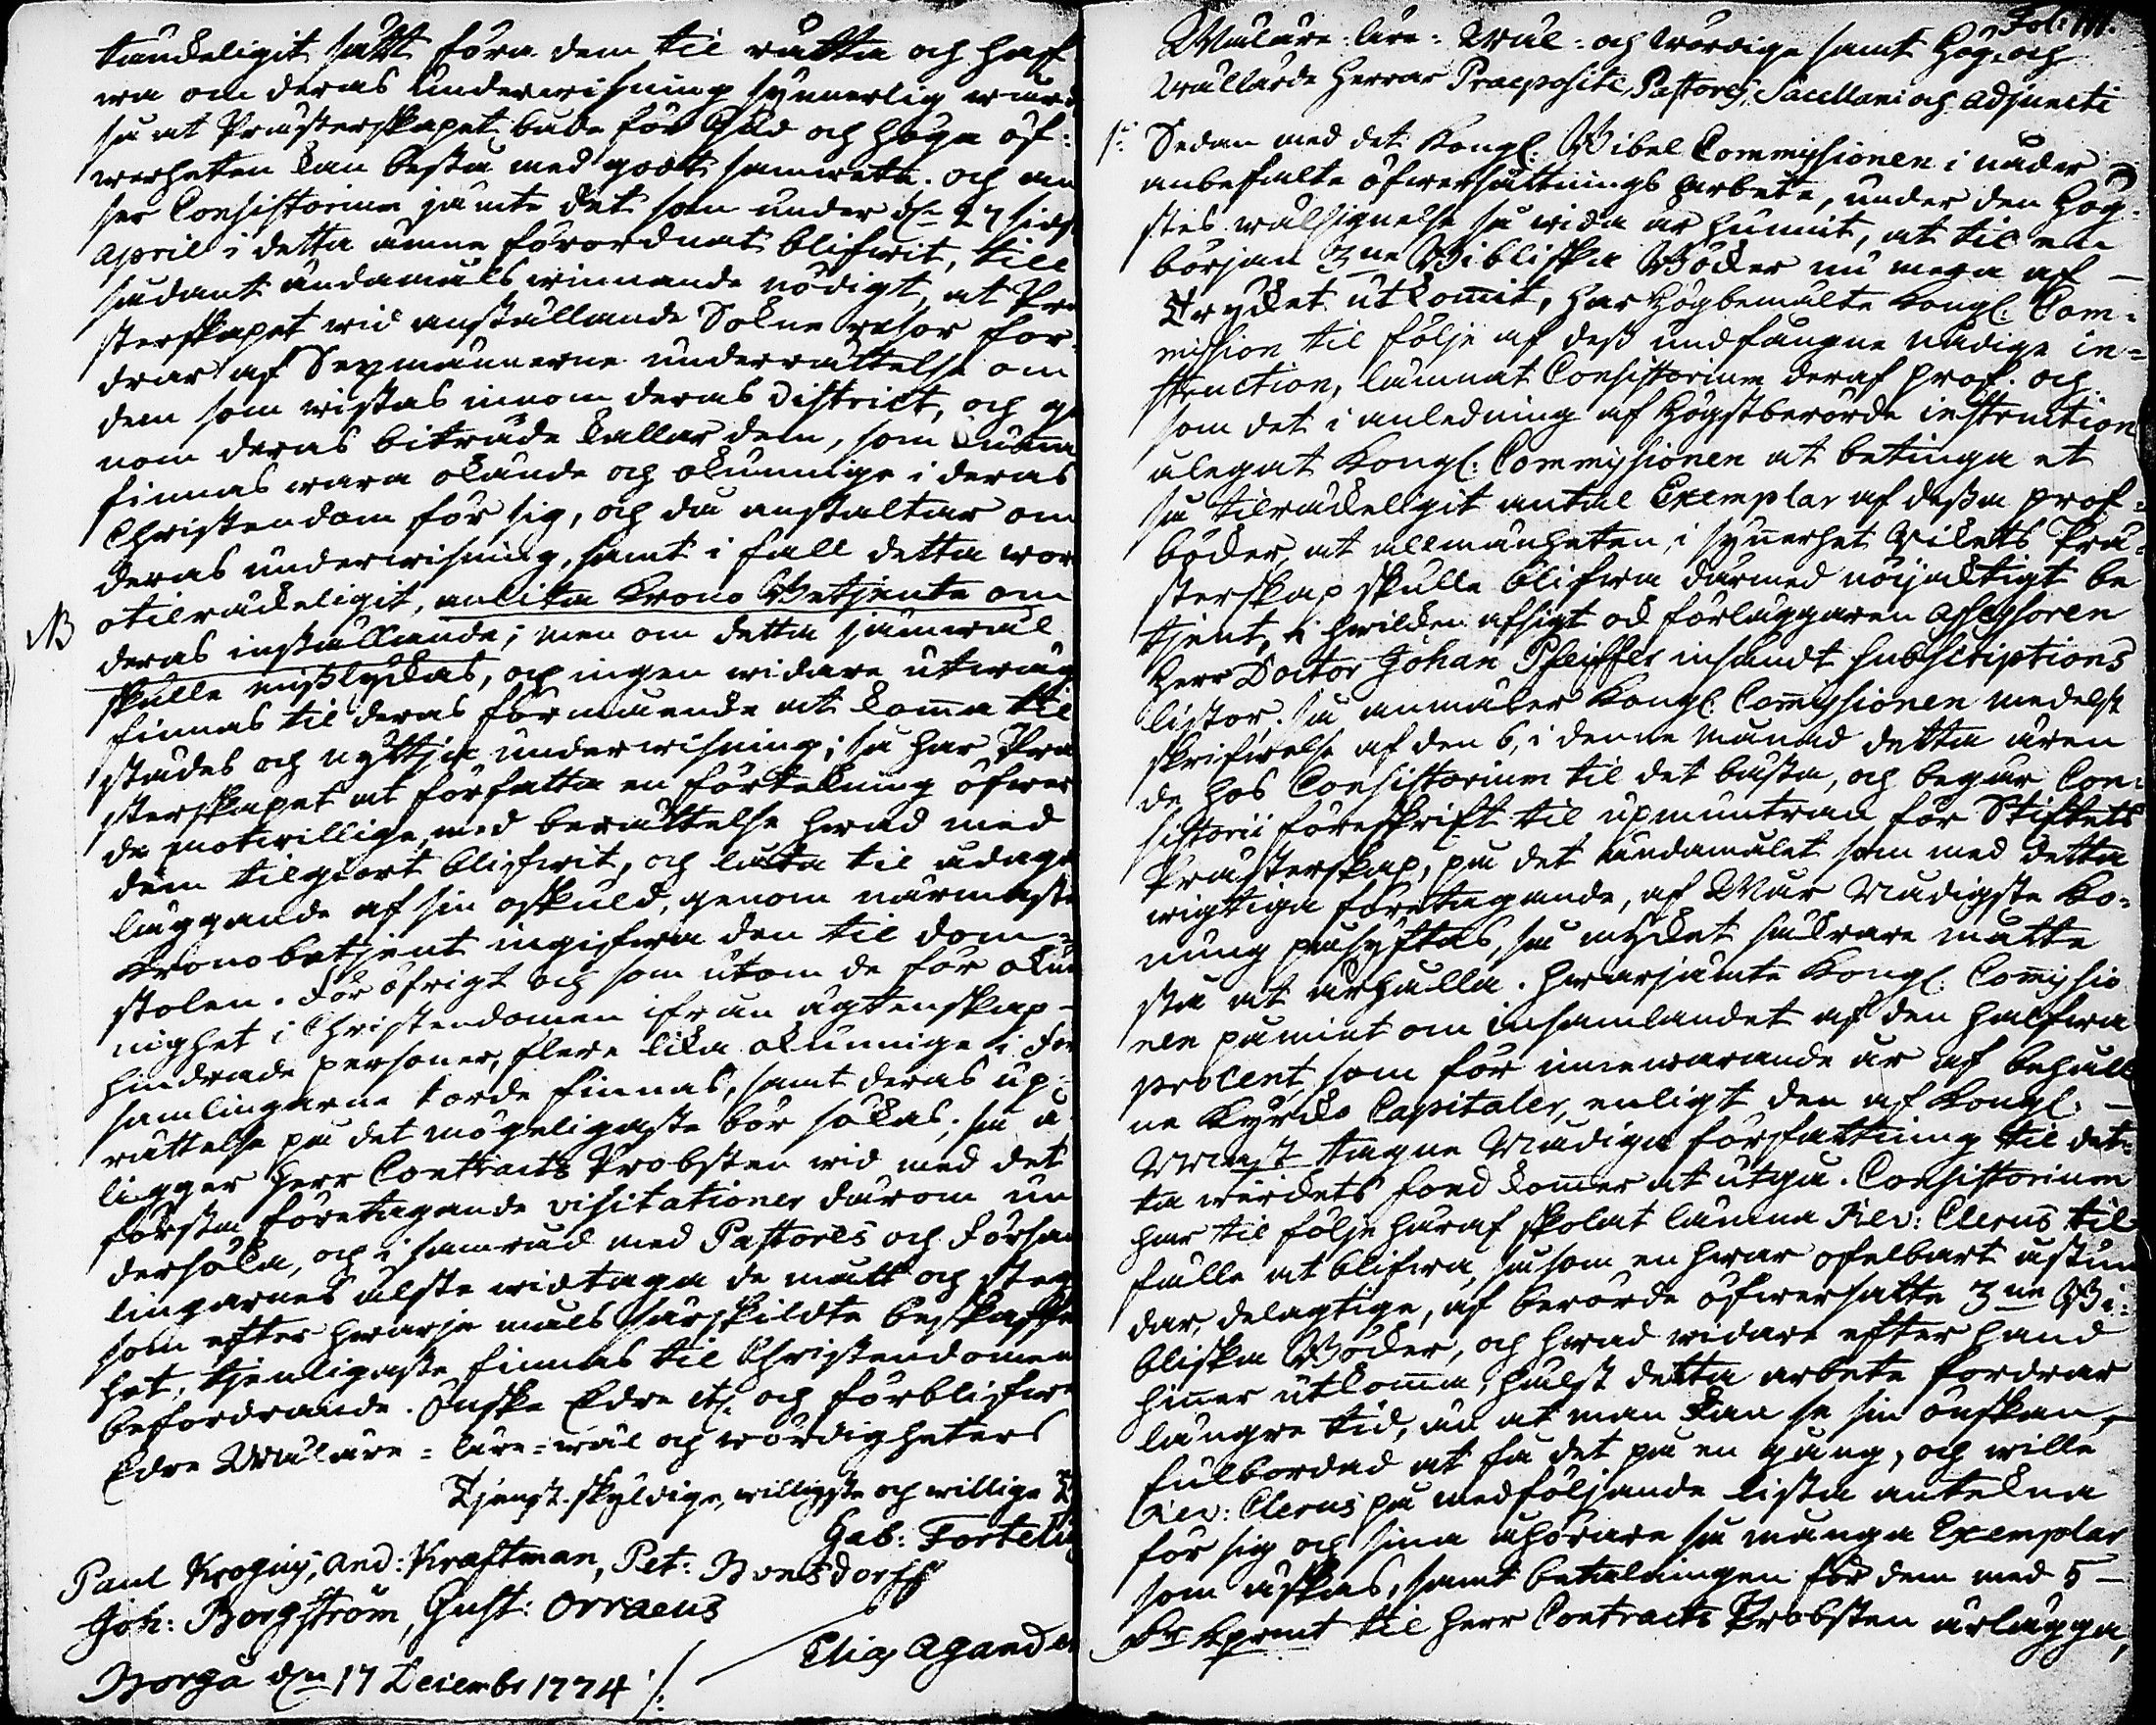 tänckeligit sätt föra dem til rätta och haf
wa om deras underwisning synnerlig wård
så at Prästerskapet både för Gud och höga öf-
werheten kan bestå med godt samwete. och an
ser Consistorium jämte det som under d:n 27 sidst
April i detta ämne förordnat blifwit, till
sådant ändamåls winnande nödigt, at Prä
sterskapet wid anställande Sokne resor for-
drar af Sexmännerne underrättelse om
dem som wistas innom deras District, och ge
nom deras biträde kallar dem, som kunna
finnas wara okände och okunnige i deras
Christendom för sig, och då anstaltar om
deras underwisning, samt i fall detta wor
otilräckeligit, anlita Krono Betjente om
NB deras inställande; men om detta jämwäl
skulle misslyckas, och ingen widare utwäg
finnas til deras förmående at komma til
städes och nyttja underwisning; så har Prä
sterskapet at författa en förtekning öfwer
de motwillige, med berättelse hwad med
dem tilgiort blifwit, och låta til ådaga
läggande af sin oskuld, genom närmaste
Kronobetjent ingifwa den til dom-
stolen. För öfrigt och som utom de för okun
nighet i Christendomen ifrån ägtenskap-
hindrade personer, flere lika okunnige i För
samlingarne torde finnas, samt deras up-
rättelse på det mögeligaste bör sökas; så å
ligger Herr Contracts Probsten wid med det
första företagande visitationer därom un
dersöka, och i samråd med Pastores och Försam
lingarnes älste widtaga de mått och steg
som efter hwarje måls särskildte beskaffen
het, tjenligaste finnas til Christendomen
befordrande. Önske Edre etc. och förblifwe
Edre Wälähre- lära- wäl och wördigheters
Tjenst-skyldige, willigste och willige
Gab: Fortelius
Paul Krogius, And: Kraftman, Pet: Bonsdorff
Joh: Borgström, Gust: Orraeus
Elias Agander
Borgå d:n 17 Decembr 1774 /.
Fol: 111.
Wäläre- läre- Wäl- och Wördige samt Hög- och
Wällärde Herrar Praepositi, Pastores, Sacellani och Adjuncti
1:o Sedan med det Kongl: Bibel Commissionen i nåder
anbefalte öfwersättnings arbete, under den Hög-
stes wälsignelse så wida är hunnit, at til en
början 3:ne Bibliska Böcker nu mera af-
trycket utkommit, har Högbemälte Kongl: Com-
mission til följe af dess undfångne nådige in-
struction, lämnat Consistorium deraf prof. och
som det i anledning af Högstberörde instruction
ålegat Kongl: Commissionen at betinga et
så tilräckeligit antal Exemplar af dessa prof-
böcker, at allmänheten, i synnerhet Rikets Prä-
sterskap skulle blifwa därmed nöijacktigt be
tjent, i hwilcken afsigt ock förläggaren Assessoren
Herr Doctor Johan Pfeiffer insändt subscriptions
listor. så anmäler Kongl: Commissionen medelst
skrifwelse af den 6, i denne månad detta ären
de hos Consistorium til det bästa, och begär Con-
sistorii föreskrift til upmuntran för Stiftets
Prästerskap, på det ändamålet som med detta
wigtiga företagande, af Wår Nådigste Ko-
nung påsyftas, så mycket säkrare måtte
stå at ärhålla. Hwarjämte Kongl: Commissio
nen påmint om insamlandet af den halfwa
procent, som för innewarande år af behåll
ne Kyrcko Capitaler, enligt den af Kongl:
Maj:st tagne Nådiga författning til det-
ta wärckets fond kommer at utgå. Consistorium
har til följe häraf skolat lämna Rev: Clerus til
fälle at blifwa, såsom en hwar ofelbart åstun
dar, delagtige, af berörde öfwersatte 3:ne Bi-
bliska Böcker, och hwad widare efter hand
hinner utkomma, hälst detta arbete fordrar
längre tid, än at man kan se sin önskan,
fulbordad at få det på en gång, och wille
Rev: Clerus på medföljande lista antekna
för sig och sina åhörare så många Exemplar
som äskas, samt betalningen för dem med 5
til Herr Contracts Probsten ärlägga,